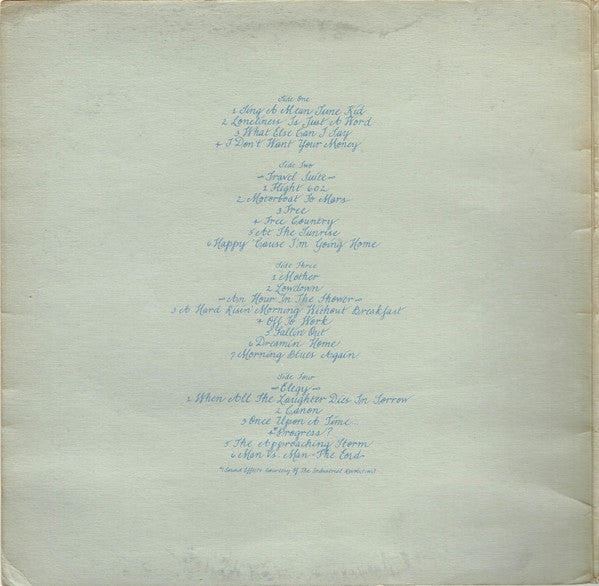 Side One
1 Sing A Mean Tune Kid
2 Loneliness Is Just A Word
3 What Else Can I Say
4 I Don't Want Your Money
Side Two
~Travel Suite~
1 Flight 602
2 Motorboat To Mars
3 Free
4 Free Country
5 At The Sunrise
6 Happy 'Cause I'm Going Home
Side Three
1 Mother
2 Lowdown
~An Hour In The Shower~
3 A Hard Risin' Morning Without Breakfast
4 Off To Work
5 Fallin Out
6 Dreamin Home
7 Morning Blues Again
Side Four
~Elegy~
1 When All The Laughter Dies In Sorrow
2 Canon
3 Once Upon A Time...
4 *Progress?
5 The Approaching Storm
6 Man Vs. Man~The End~
*(Sound Effects Courtesy Of The Industrial Revolution)